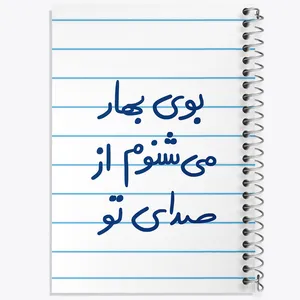 بوی بهار
می شنوم از
صدای تو